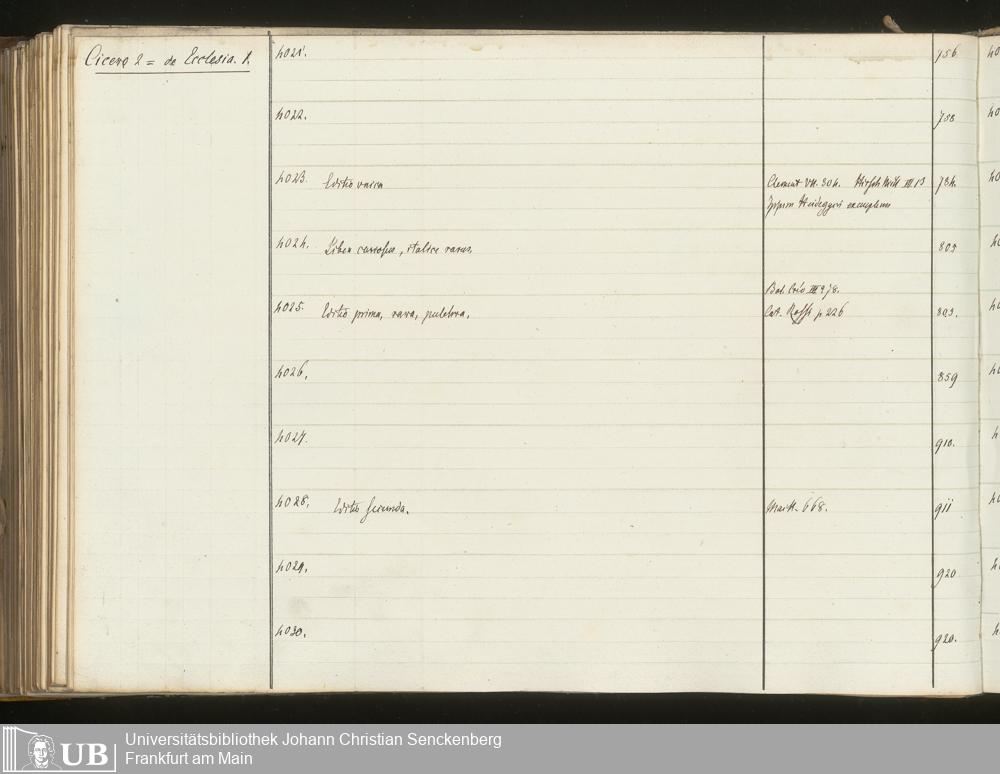 Cicero 2 = de Ecclesia. 1.
4021. 756
4022. 758
4023. Editio unica Clement VII. 304. Hirsch Mill III 13 784.
Ipsum Heideggeri exemplum
4024. Liber curiosus, italice rarus. 803
Bibl. Crev III 278.
4025. Editio prima, rara, pulchra. Cat. p. 226 803.
4026. 859
4027. 910.
4028. Editio secunda. Maitt. 668. 911
4029. 920
4030. 920.
UB
Universitätsbibliothek Johann Christian Senckenberg
Frankfurt am Main